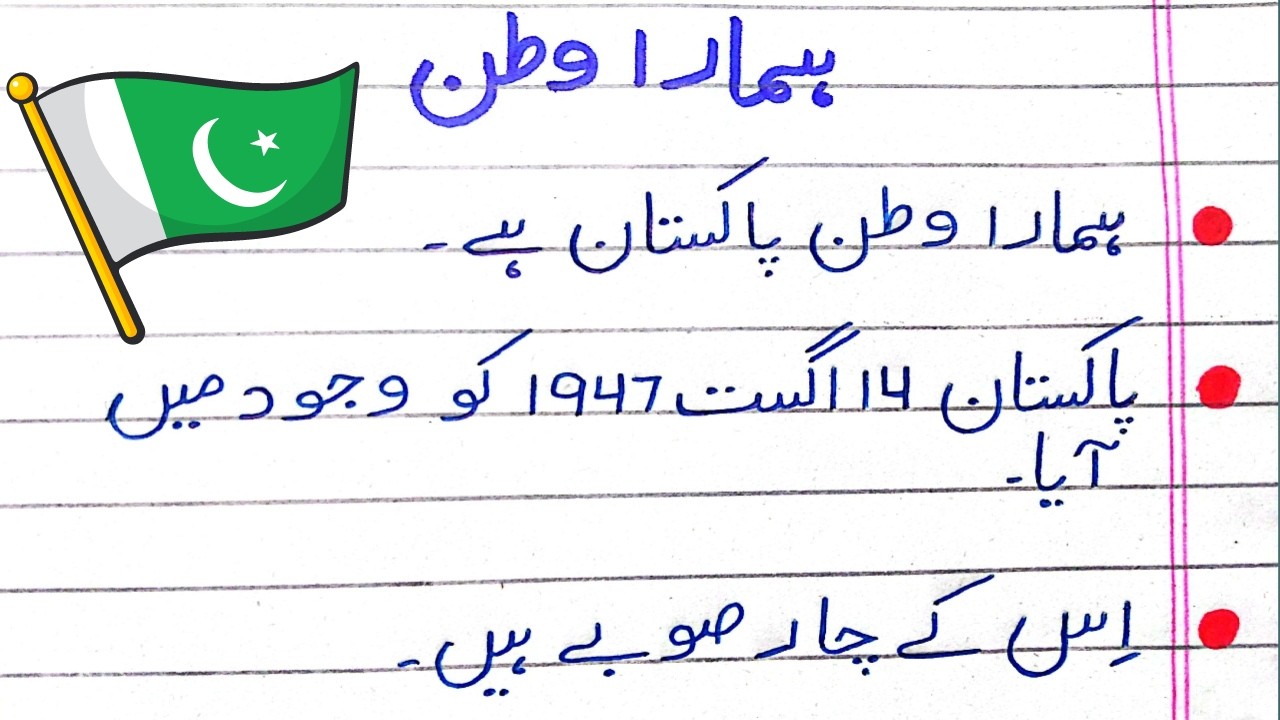 ہمارا وطن
ہمارا وطن پاکستان ہے۔
پاکستان 14 اگست 1947 کو وجود میں
آیا۔
اِس کے چار صوبے ہیں۔